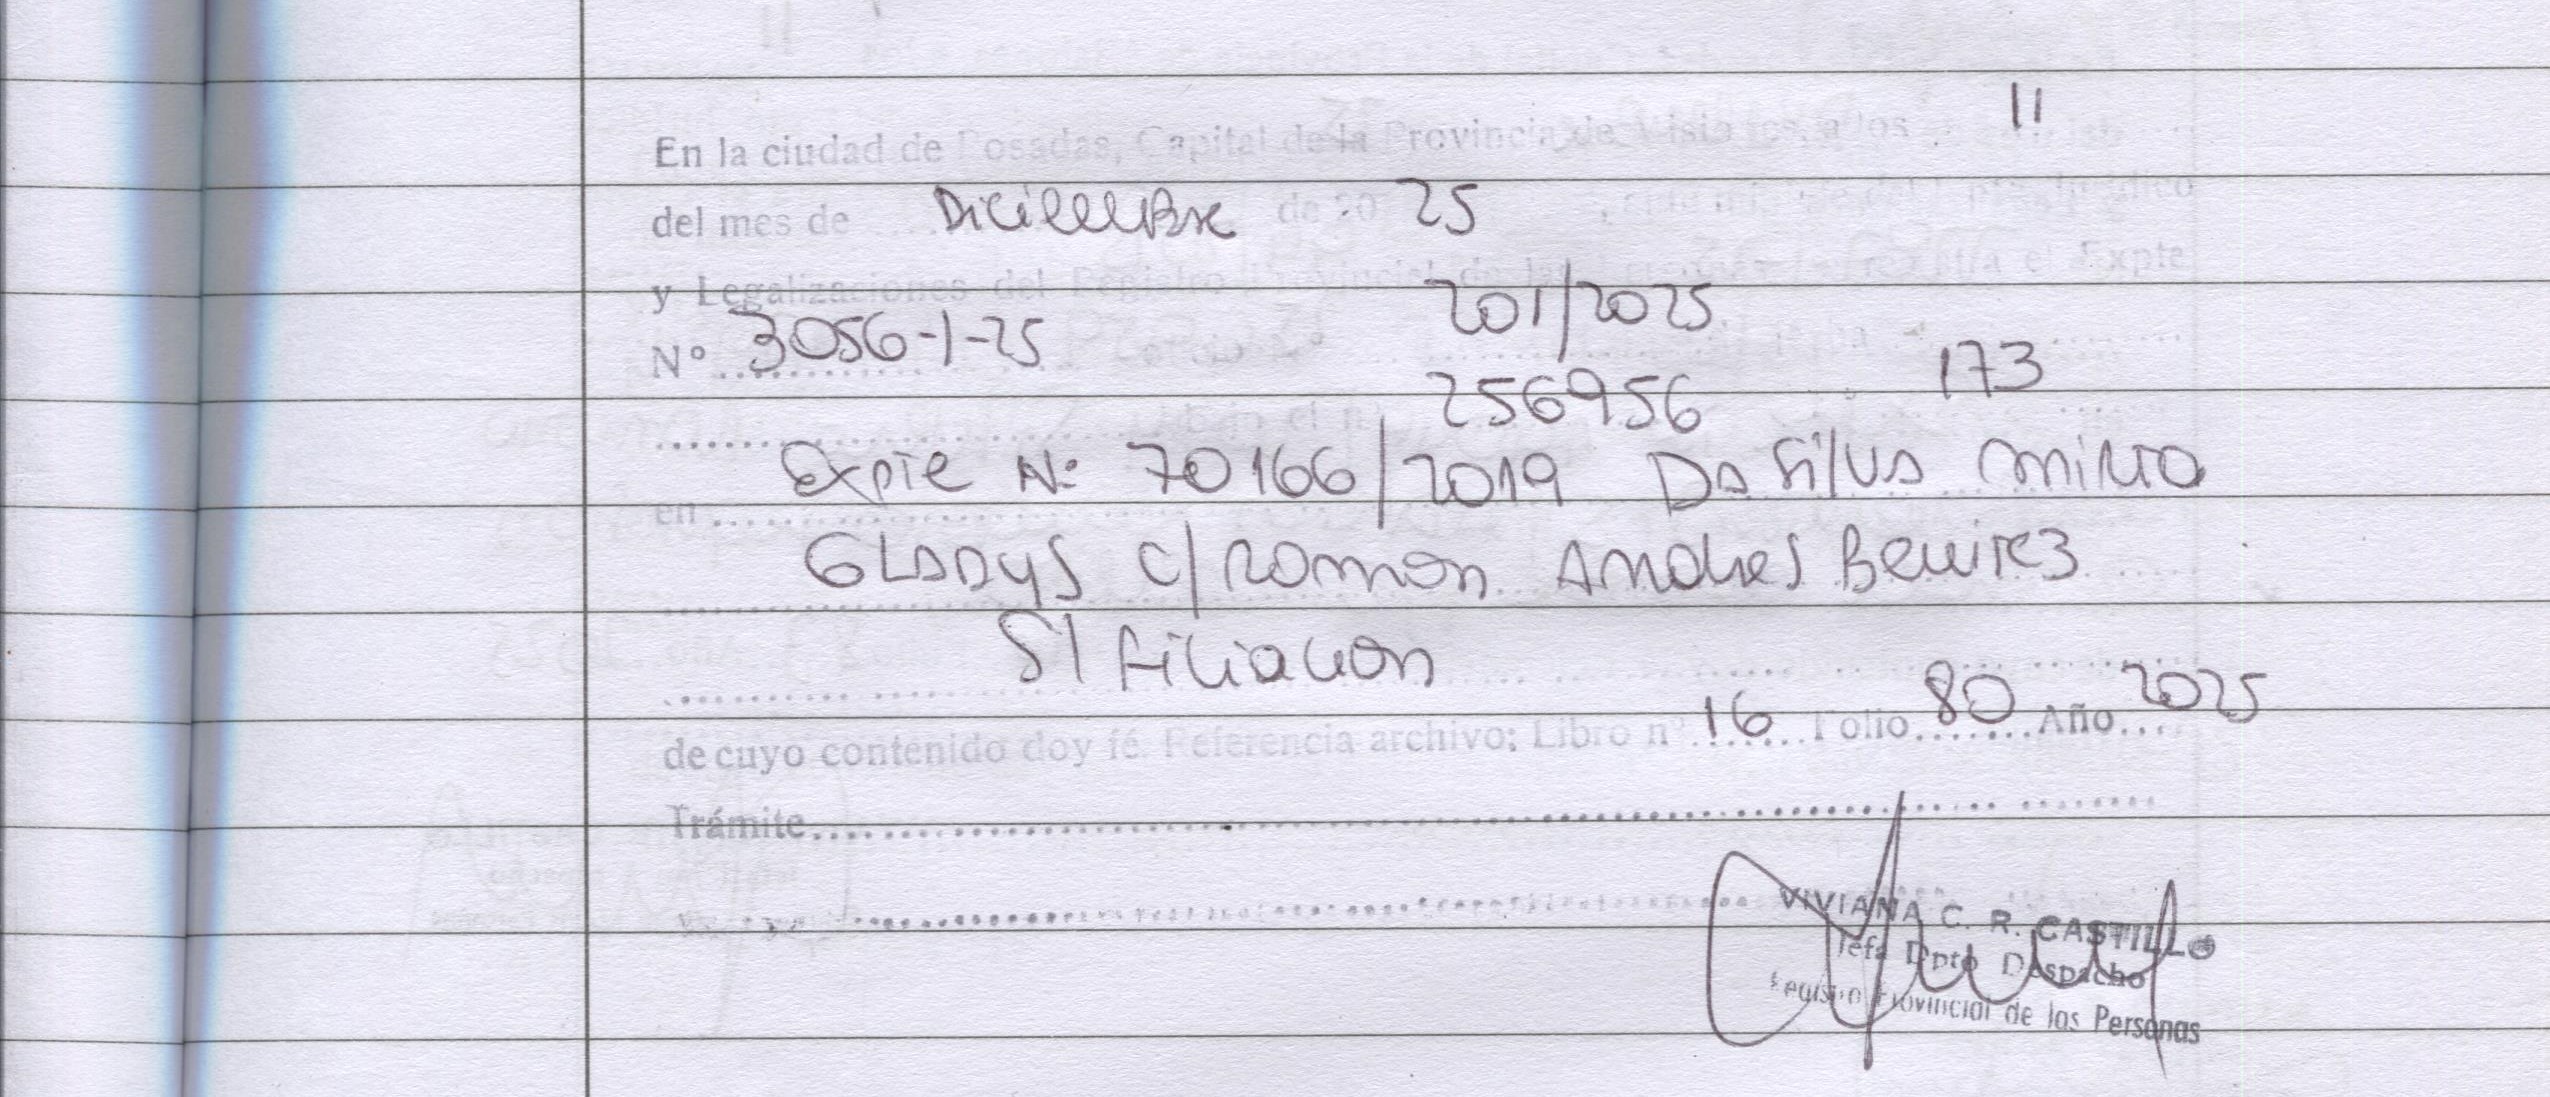 En la ciudad de Posadas, Capital de la Provincia de Misiones, a los 11
del mes de Diciembre de 20 25
y Legalizaciones del Registro Provincial de las el Expte
201/2025
Nº 3056-1-25
173
256956
Expte Nº 70166/2019 Da Silva
en
Gladys c/ Ramon Andres Benitez
S/ filiacion
de cuyo contenido doy fé. Referencia archivo: Libro nº 16 Folio 80 Año 2025
Trámite
VIVIANA C. R. CASTILLO
Jefa Dpto Despacho
Registro Provincial de las Personas